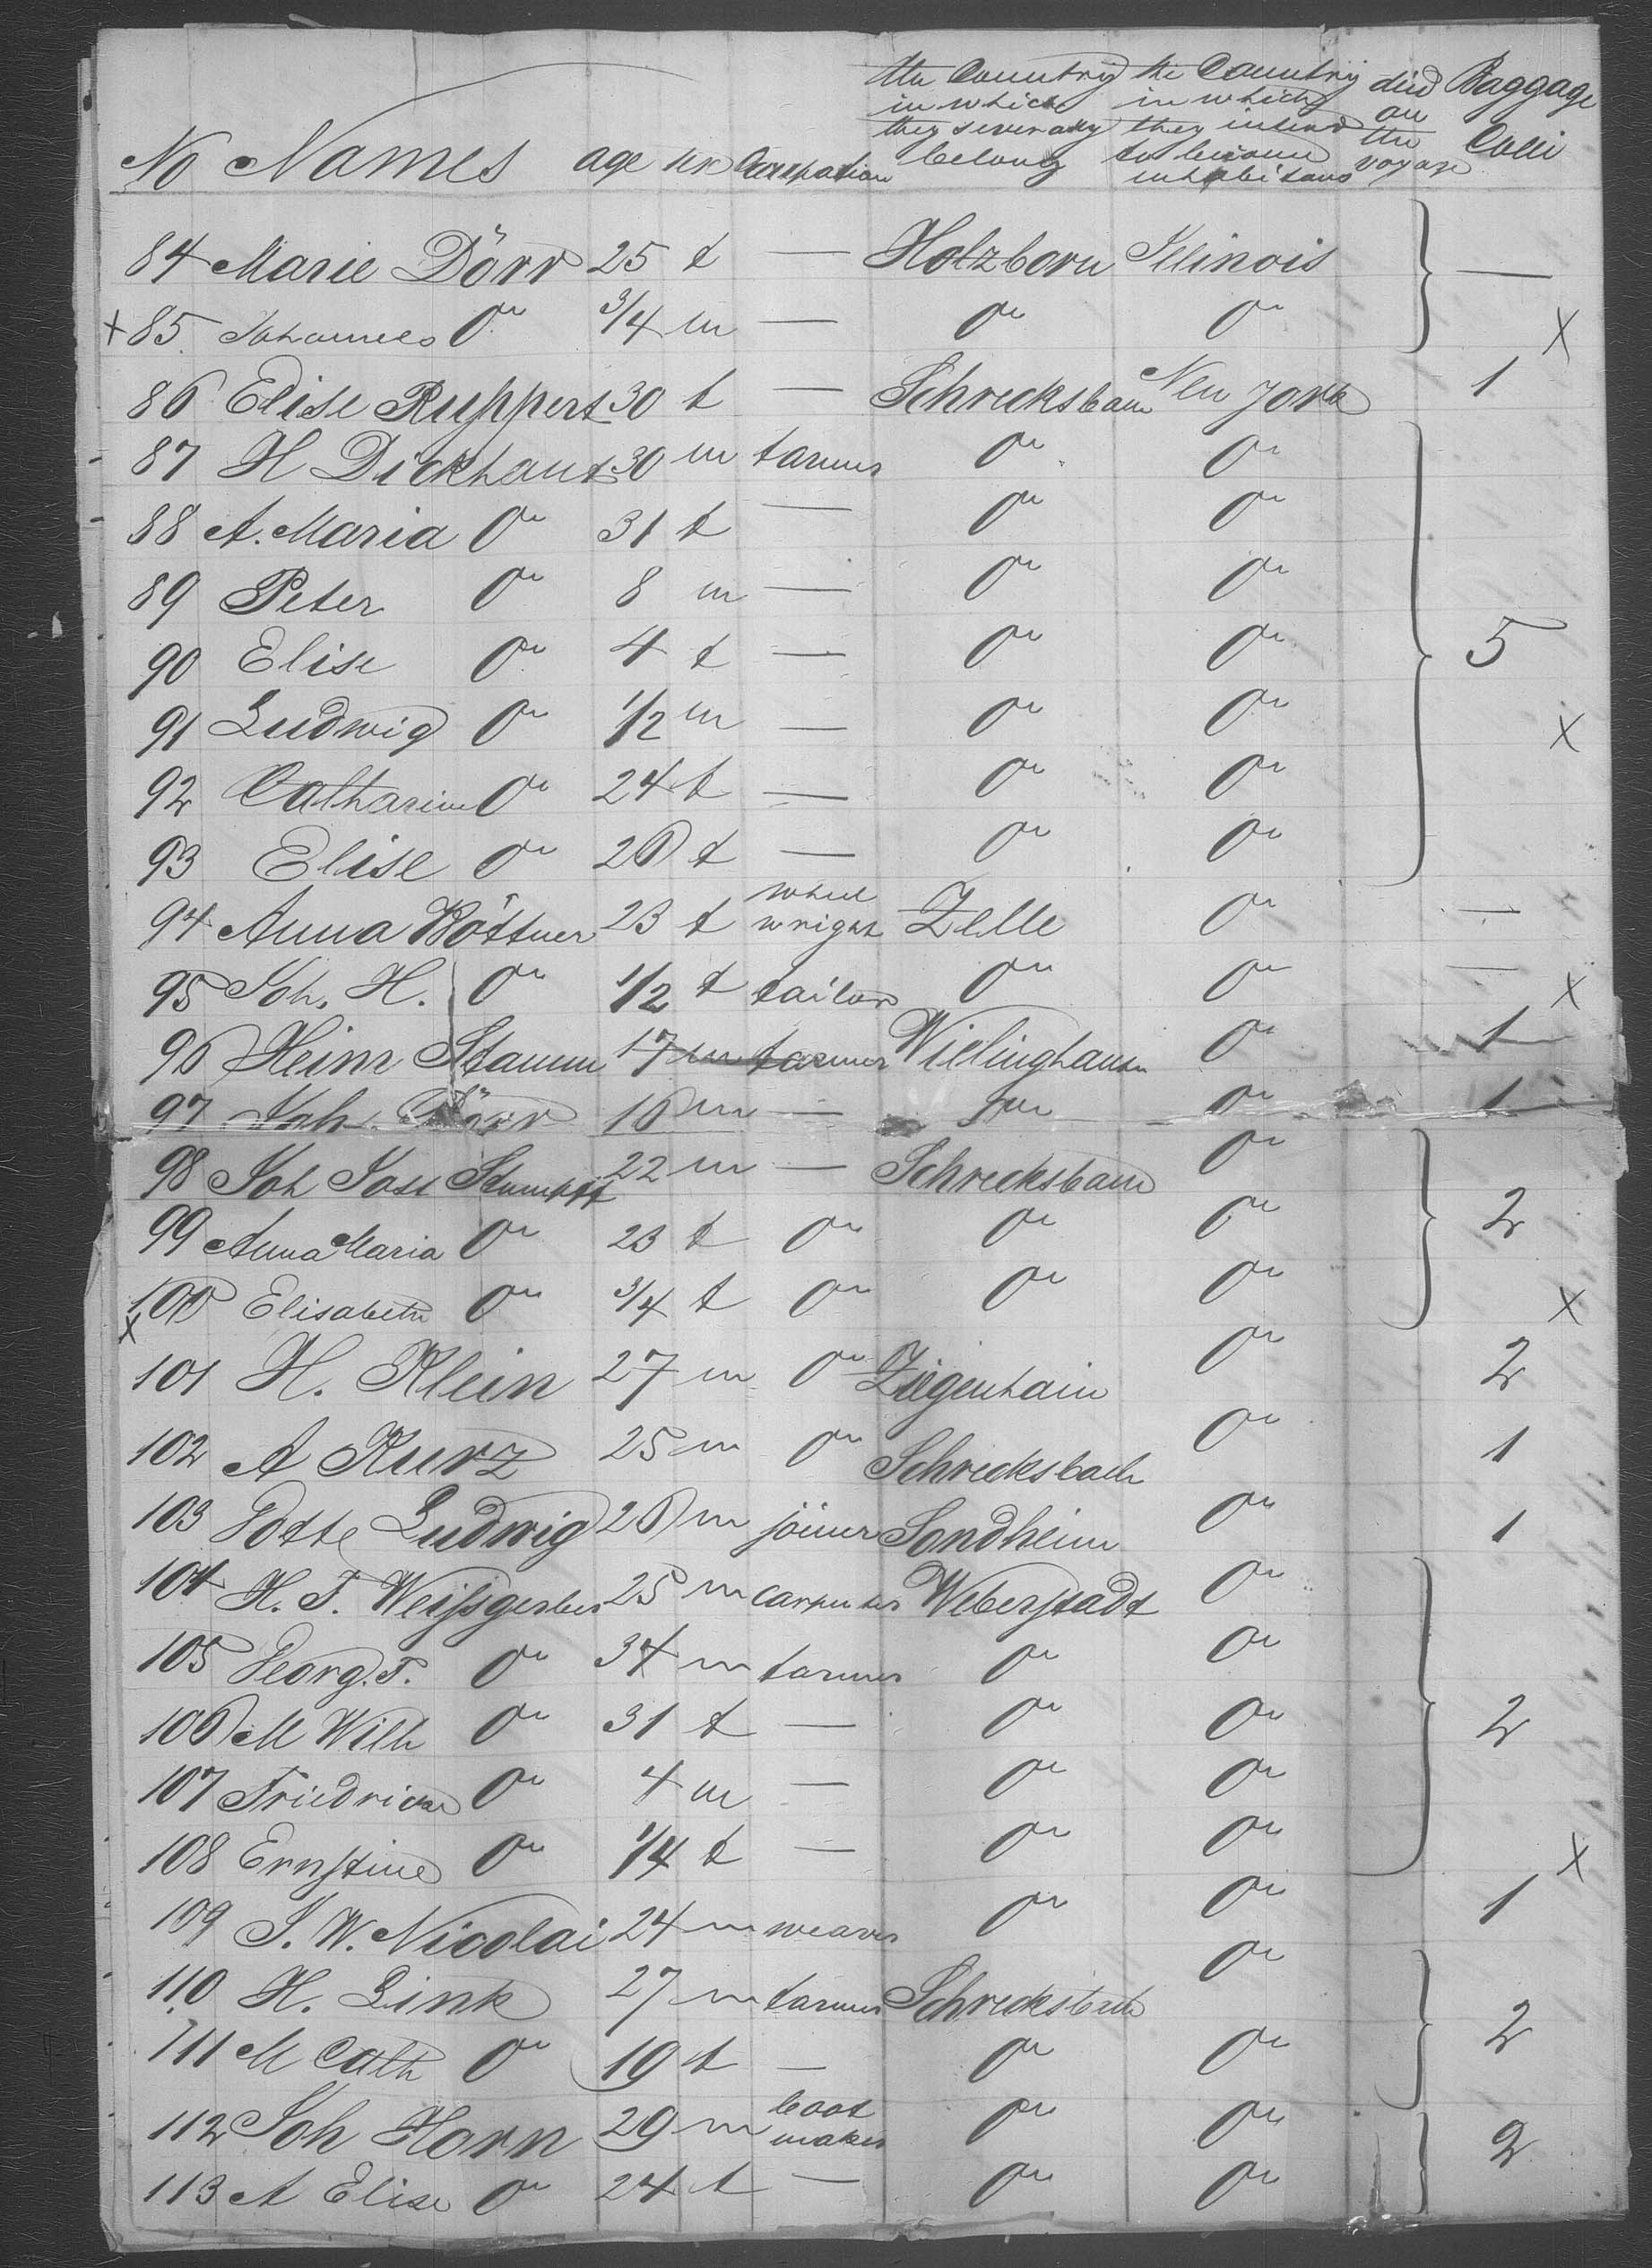 No Names age sex Occupation the Country in which they severally belong the Country in which they intend to become inhabitans died on the voyage Baggage Colli
84 Marie Dörr 25 f — Holzborn Illinois —
+ 85 Johannes do 3/4 m — do do X
86 Elise Ruppert 30 f — Schrecksbach New York 1
87 H Dickhaut 30 m farmer do do
88 A. Maria do 31 f — do do
89 Peter do 8 m — do do
90 Elise do 4 f — do do 5
91 Ludwig do 1/2 m — do do X
92 Catharine do 24 f — do do
93 Elise do 26 f — do do
94 Anna Böttner 23 f wheel wright Zelle do —
95 Joh. H. do 1/2 f tailor do do — X
96 Heinr Stamm 17 m farmer Willinghausen do 1
97 Joh. Dörr 16 m — do do 1
98 Joh Jost Stumpff 22 m — Schrecksbach do
99 Anna Maria do 23 f do do do 2
X 100 Elisabeth do 3/4 f do do do X
101 H. Klein 27 m do Ziegenhain do 2
102 A Kurz 25 m do Schrecksbach do 1
103 Ludwig 26 m joiner Sondheim do 1
104 H. F. Weißgerber 25 m carpenter Weberstadt do
105 Georg. F. do 34 m farmer do do
106 M Wilh do 31 f — do do 2
107 Friedrich do 4 m — do do
108 Ernstine do 1/4 f — do do X
109 J. W. Nicolai 24 m weaver do do 1
110 H. Link 27 m farmer Schrecksbach do
111 M Cath do 19 f — do do 2
112 Joh Horn 29 m boot maker do do 2
113 A Elise do 24 f — do do